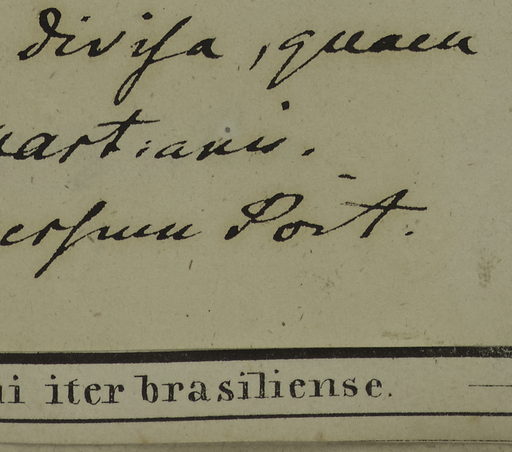 divisa, quam
artianis.
ersum Poit.
ui iter brasiliense.